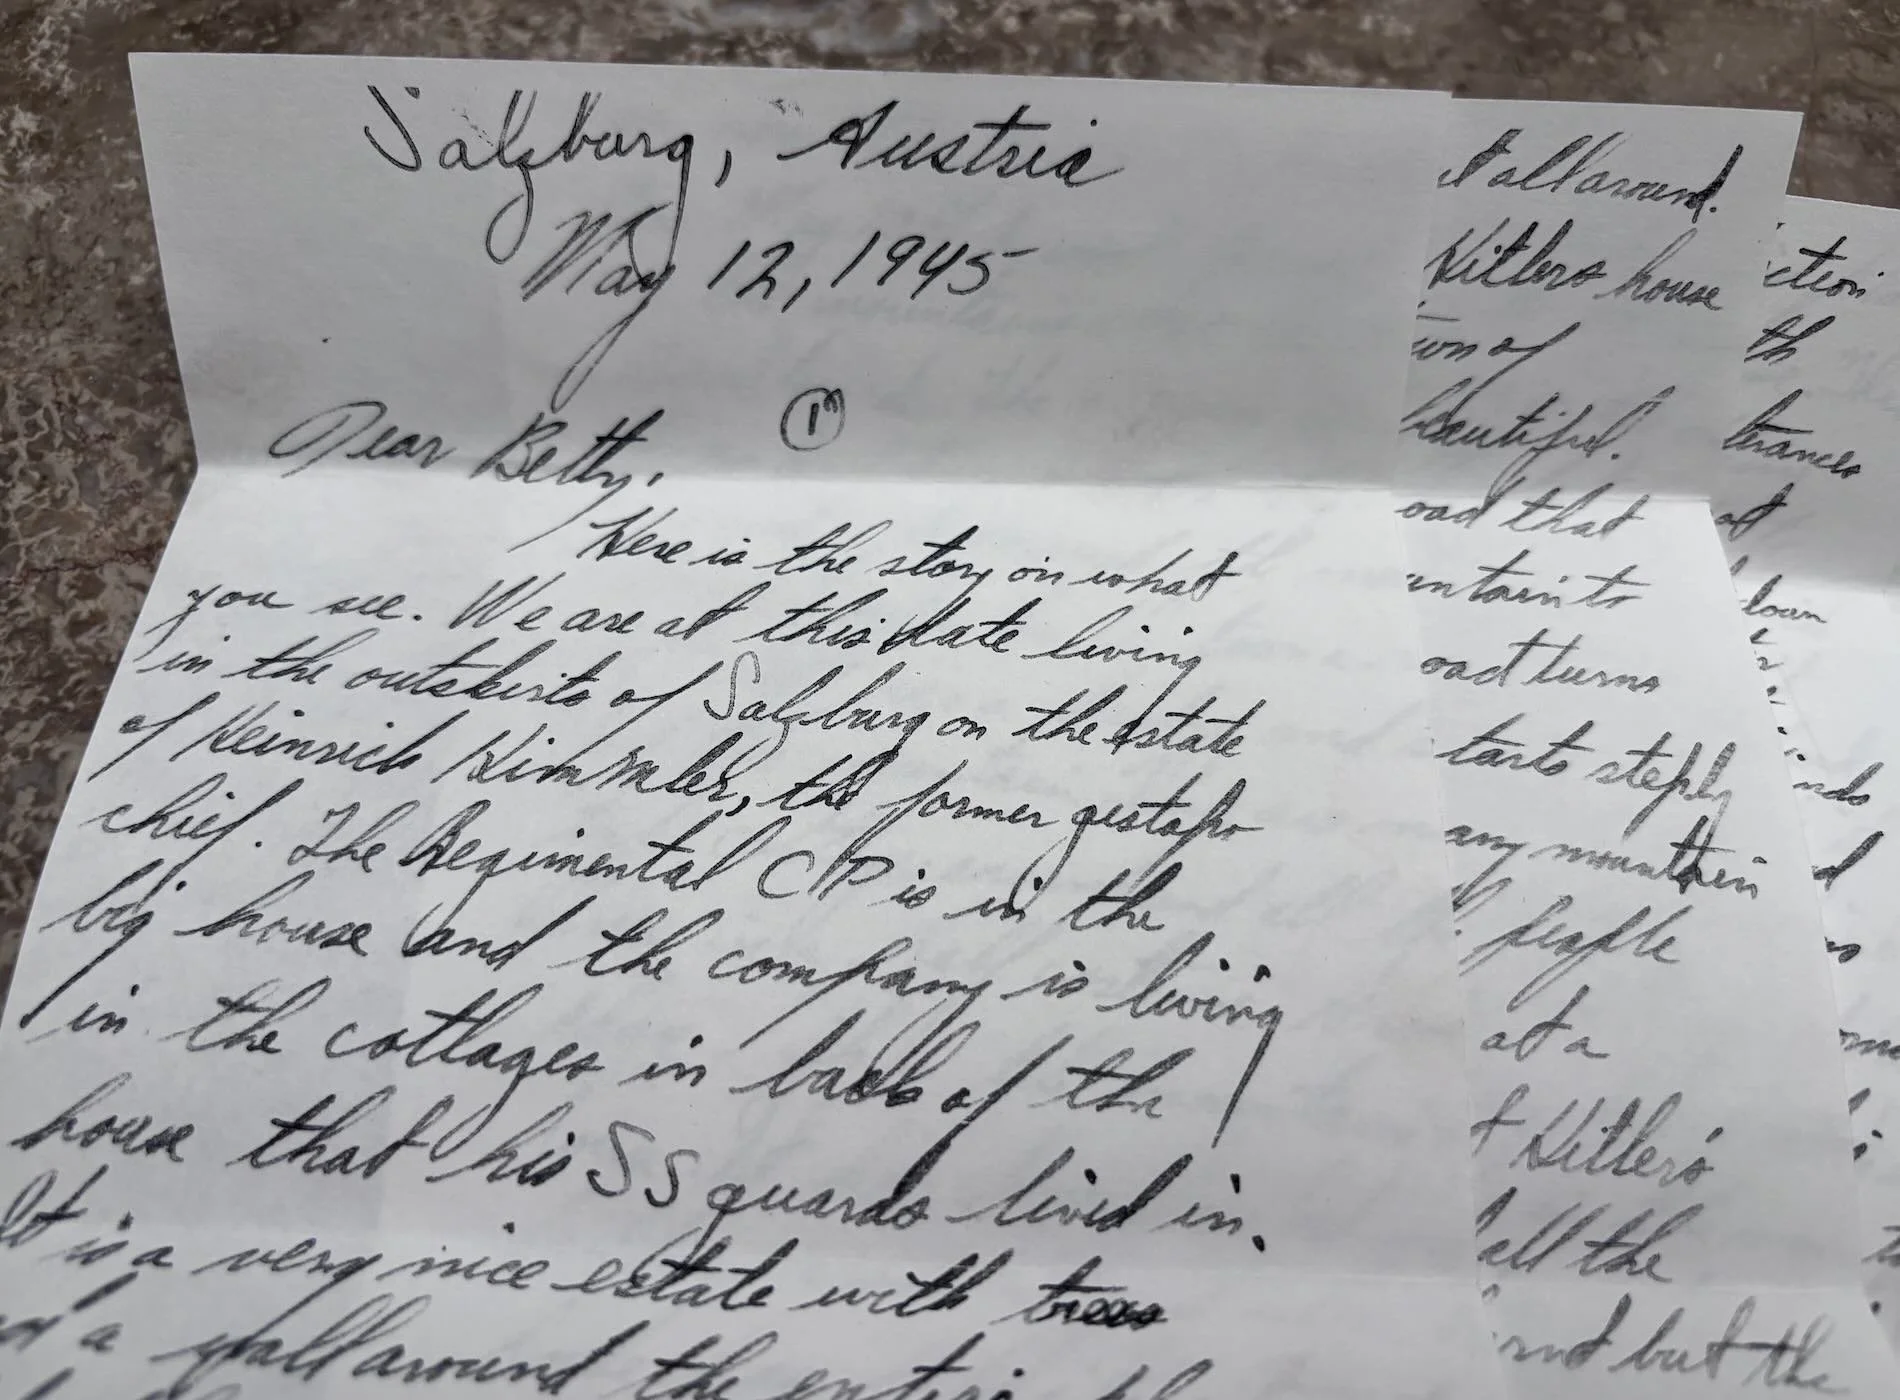 Salzburg, Austria
May 12, 1945
1
Dear Betty,
Here is the story on what
you see. We are at this date living
in the outskirts of Salzburg on the estate
of Heinrich Himmler, the former gestapo
chief. The Regimental CP is in the
big house and the company is living
in the cottages in back of the
house that his SS guards lived in.
It is a very nice estate with trees
a wall around the
all around.
Hitlers house
of
beautiful.
that
turns
steply
any mountain
people
at a
Hitler's
all the
but the
th
terances
at